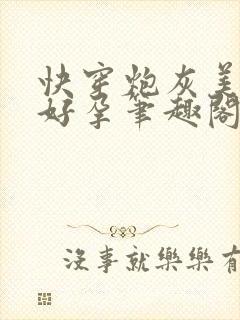 快穿炮灰美
好孕筆趣閣
沒事就樂樂有